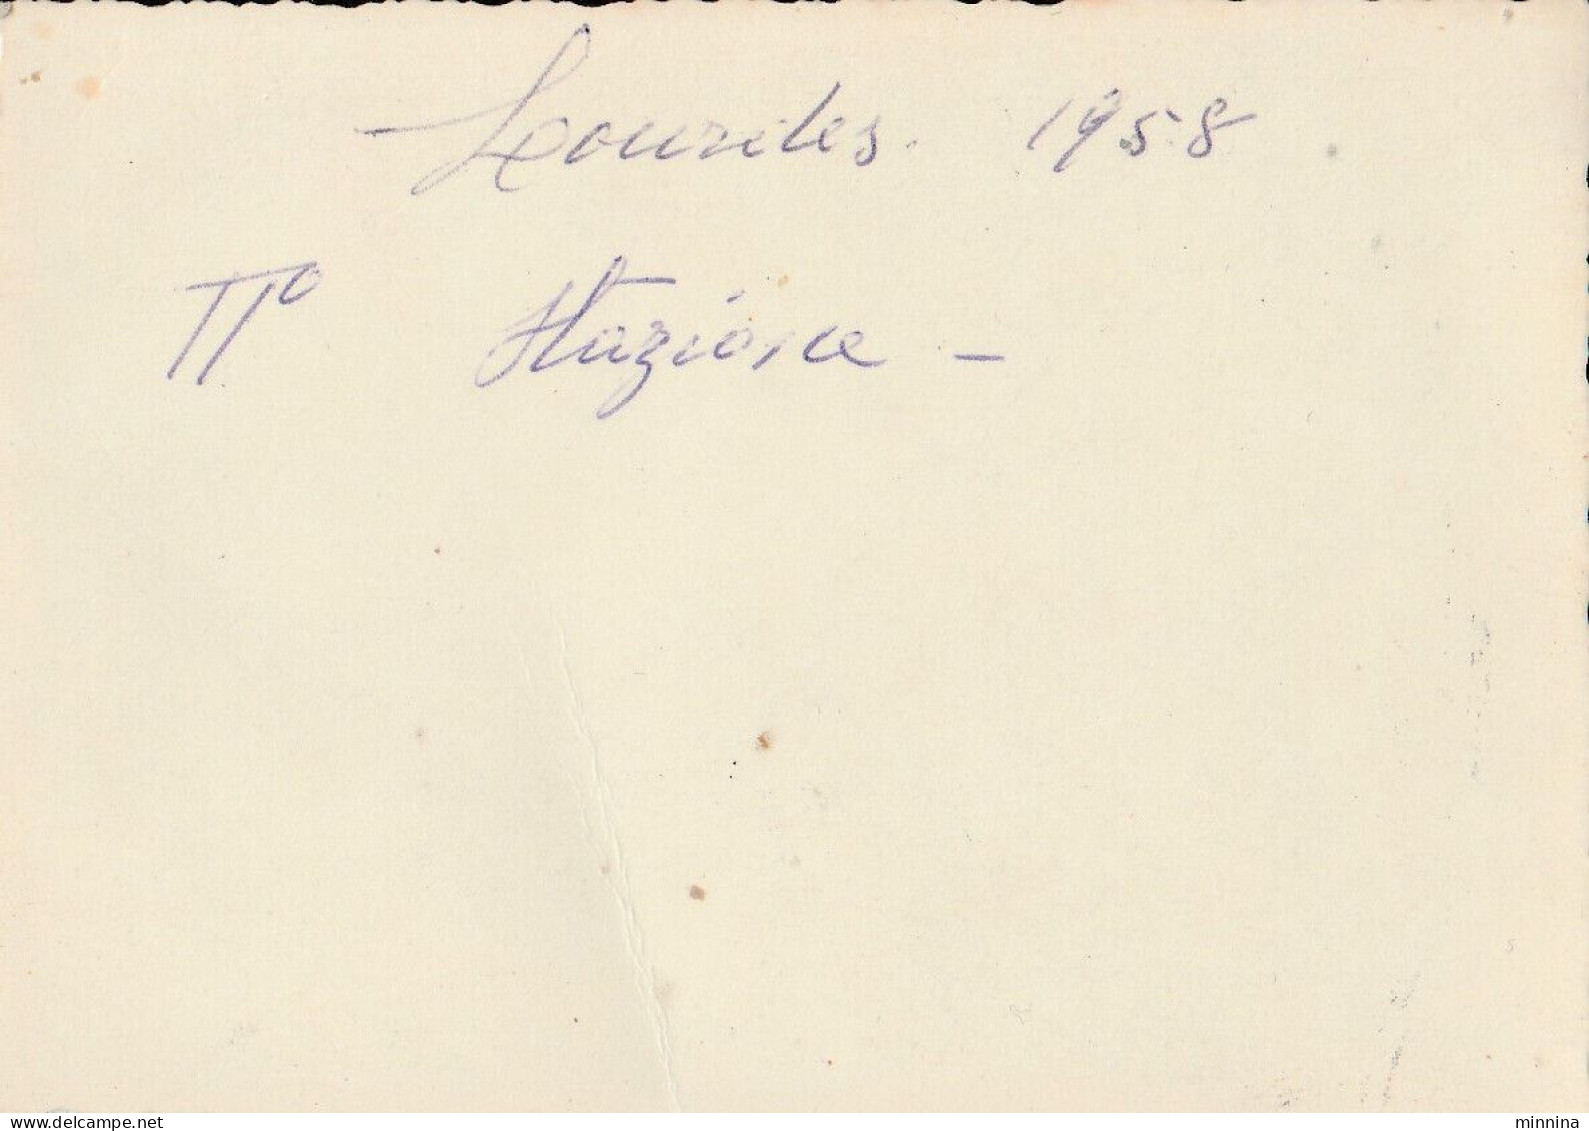 Lourdes. 1958
IIº Stazione -
www.delcampe.net
minnina